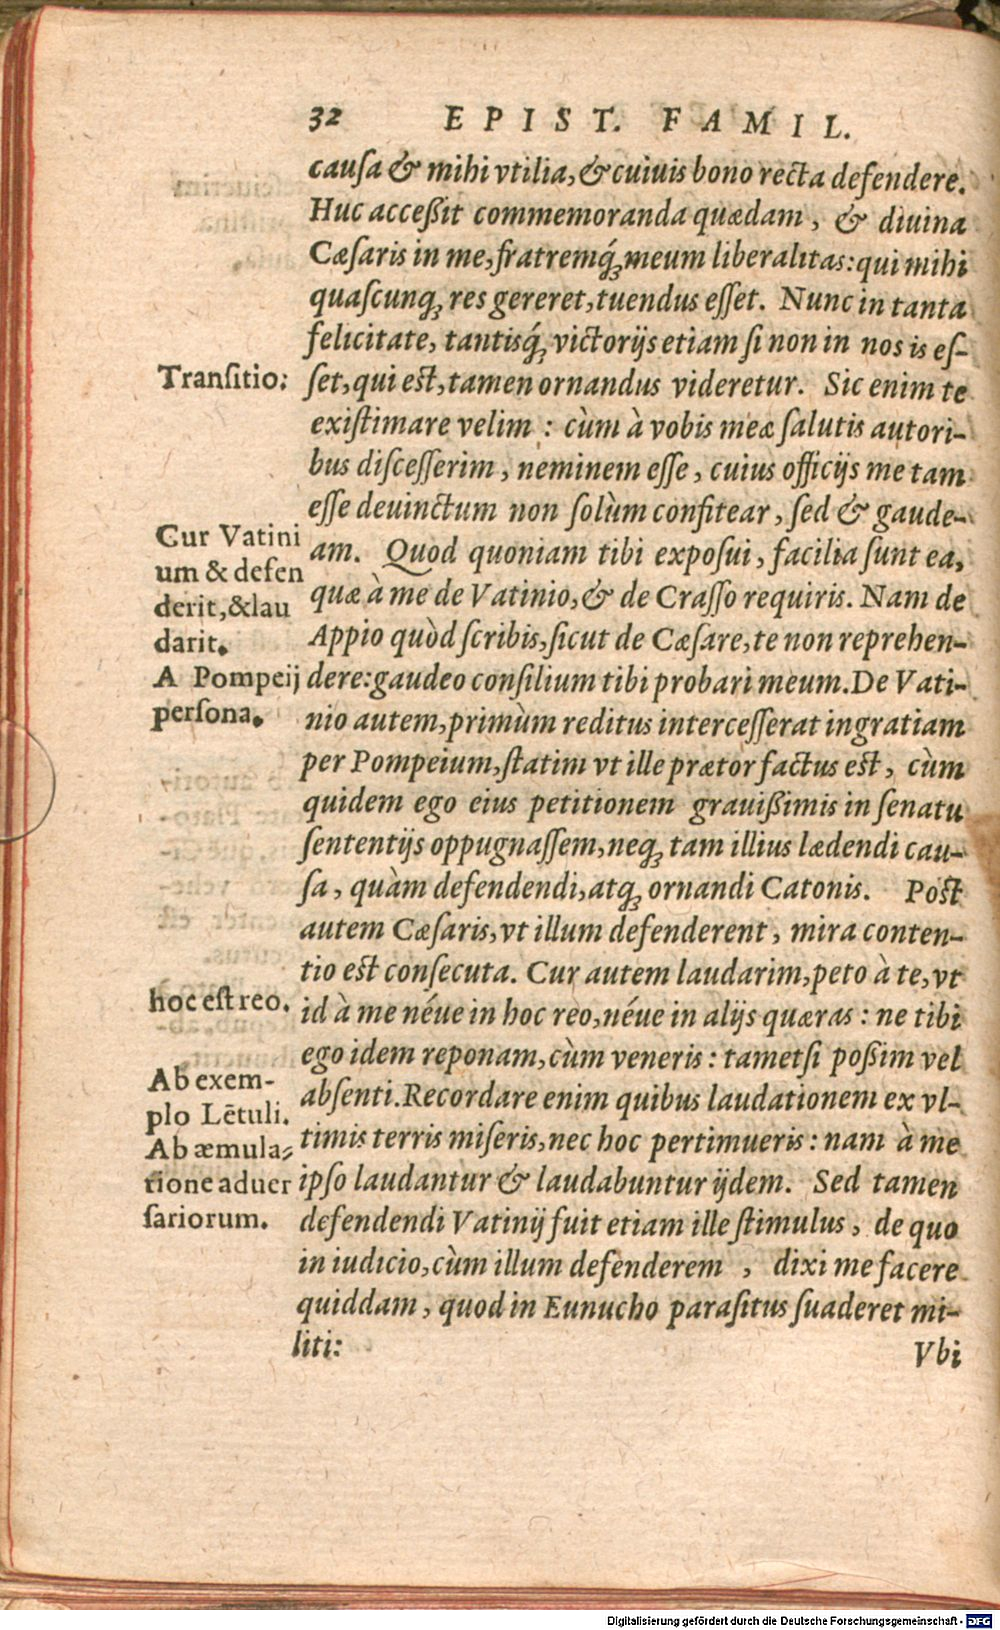 32 EPIST. FAMIL.
cauſa & mihi vtilia, & cuiuis bono recta defendere.
Huc acceßit commemoranda quædam, & diuina
Cæſaris in me, fratremq́ꝫ meum liberalitas: qui mihi
quaſcunqꝫ res gereret, tuendus eſſet. Nunc in tanta
felicitate, tantisq́ꝫ victorijs etiam ſi non in nos is eſ-
ſet, qui eſt, tamen ornandus videretur. Sic enim te
exiſtimare velim: cùm à vobis meæ ſalutis autori-
bus diſceſſerim, neminem eſſe, cuius officijs me tam
eſſe deuinctum non ſolùm confitear, ſed & gaude-
am. Quod quoniam tibi expoſui, facilia ſunt ea,
quæ à me de Vatinio, & de Craſſo requiris. Nam de
Appio quòd ſcribis, ſicut de Cæſare, te non reprehen-
dere: gaudeo conſilium tibi probari meum. De Vati-
nio autem, primùm reditus interceſſerat in gratiam
per Pompeium, ſtatim vt ille prætor factus eſt, cùm
quidem ego eius petitionem grauißimis in ſenatu
ſententijs oppugnaſſem, neqꝫ tam illius lædendi cau-
ſa, quàm defendendi, atqꝫ ornandi Catonis. Poſt
autem Cæſaris, vt illum defenderent, mira conten-
tio eſt conſecuta. Cur autem laudarim, peto à te, vt
id à me néue in hoc reo, néue in alijs quæras: ne tibi
ego idem reponam, cùm veneris: tametſi poßim vel
abſenti. Recordare enim quibus laudationem ex vl-
timis terris miſeris, nec hoc pertimueris: nam à me
ipſo laudantur & laudabuntur ijdem. Sed tamen
defendendi Vatinij fuit etiam ille ſtimulus, de quo
in iudicio, cùm illum defenderem, dixi me facere
quiddam, quod in Eunucho paraſitus ſuaderet mi-
liti:
Vbi
Tranſitio:
Cur Vatini
um & defen
derit, & lau
darit.
A Pompeij
perſona.
hoc eſt reo.
Ab exem-
plo Lētuli.
Ab æmula-
tione aduer
ſariorum.
Digitalisierung gefördert durch die Deutsche Forschungsgemeinschaft - DFG